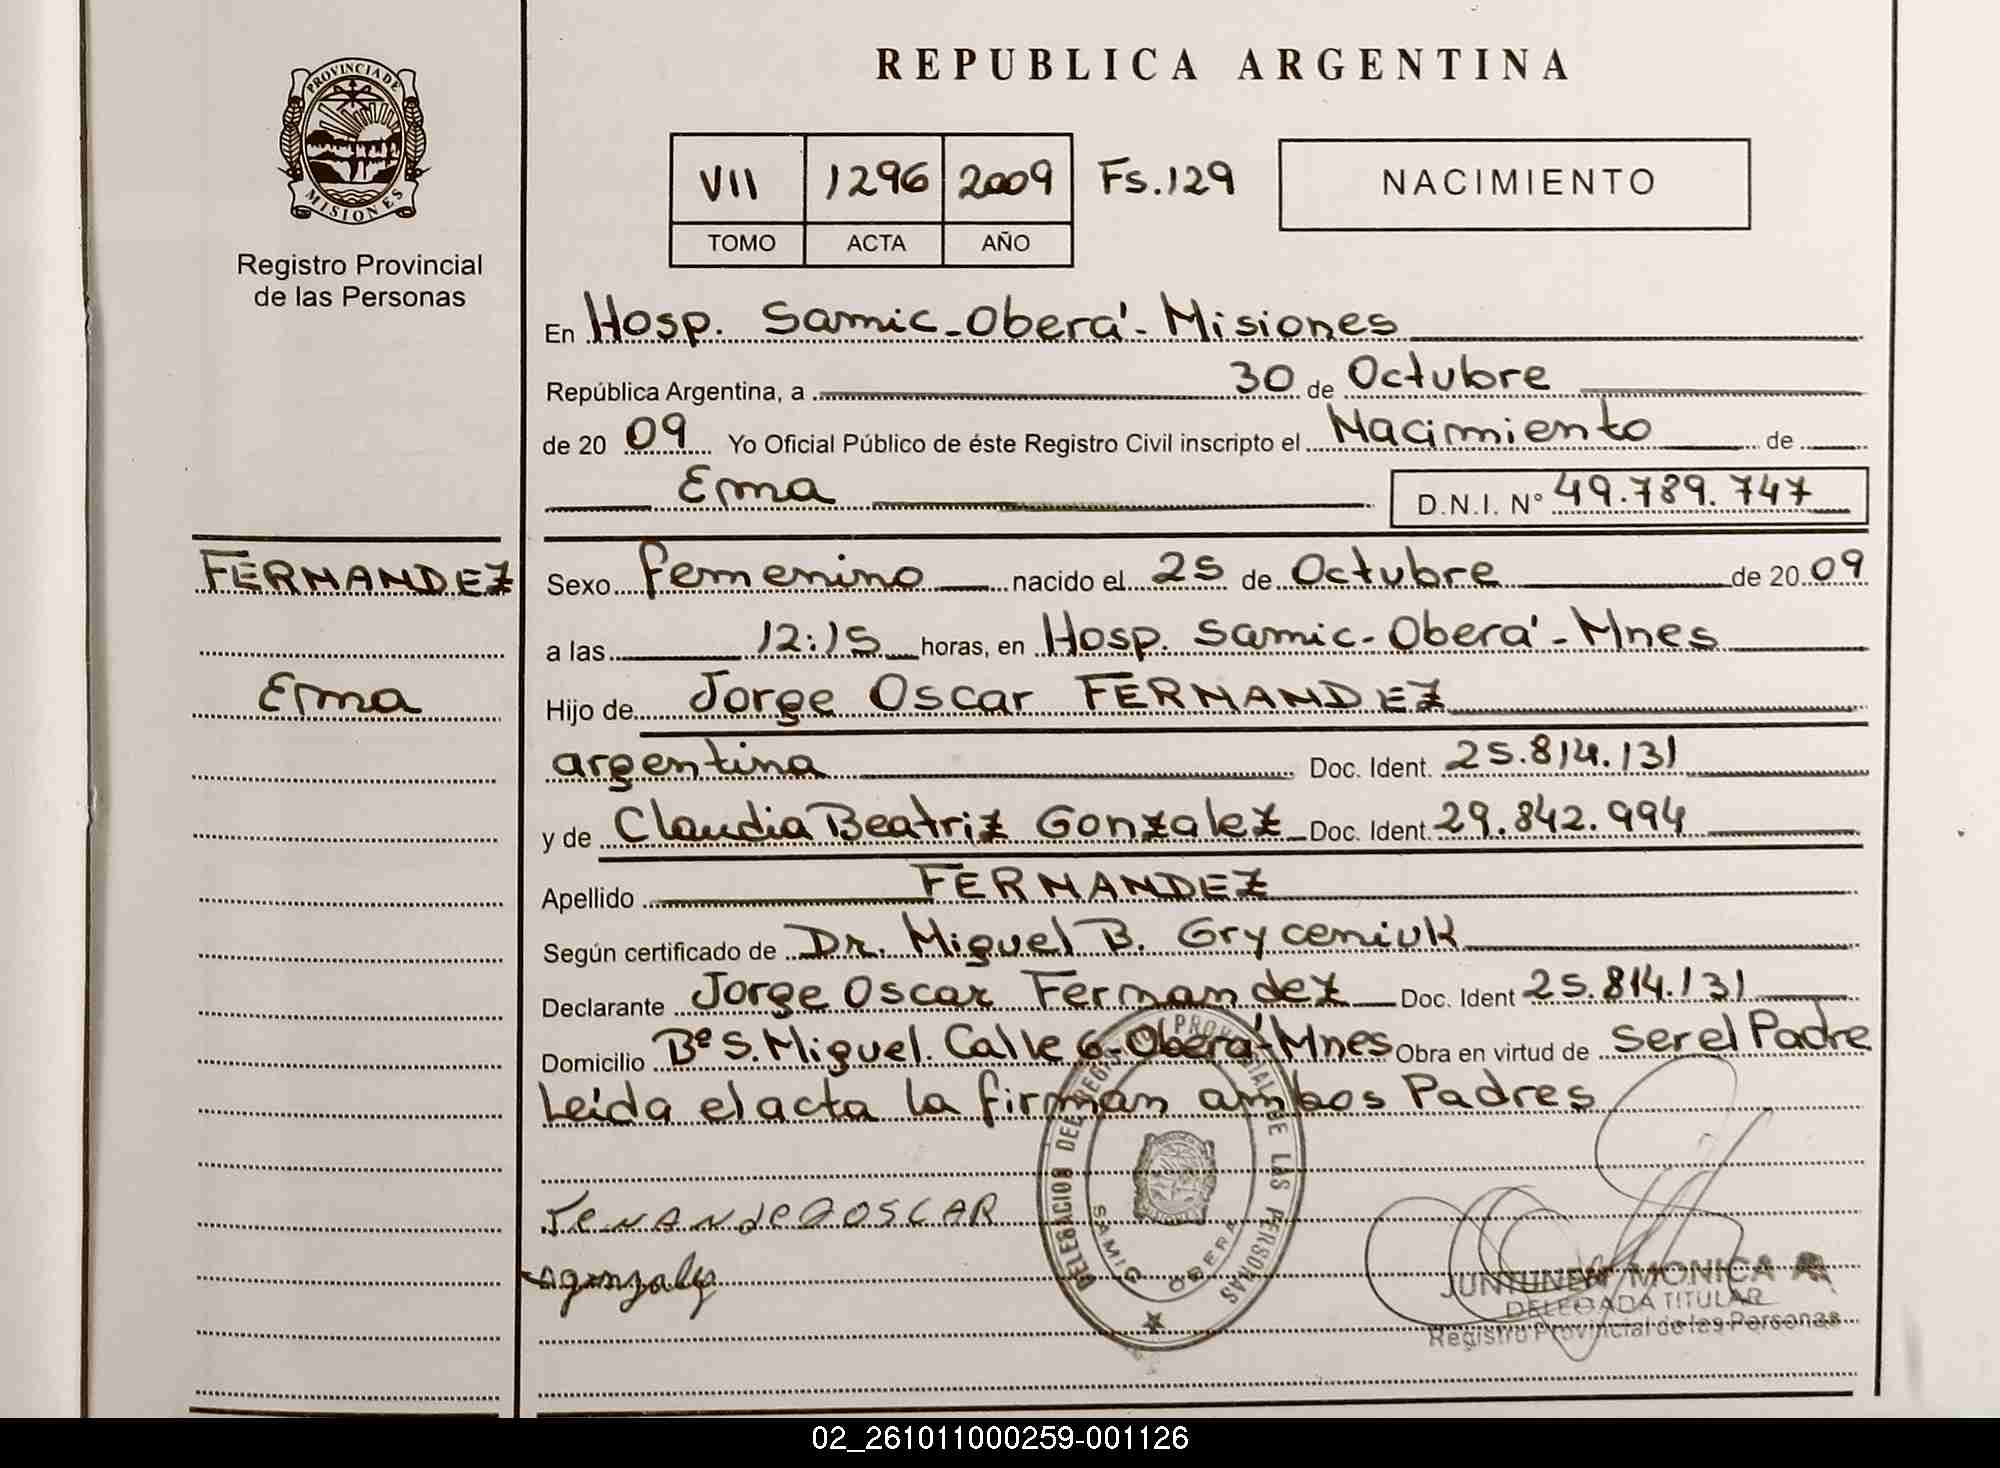 REPUBLICA ARGENTINA
PROVINCIA DE
MISIONES
Registro Provincial
de las Personas
VII 1296 2009 Fs. 129
TOMO ACTA AÑO
NACIMIENTO
En Hosp. Samic - Oberá - Misiones
República Argentina, a 30 de Octubre
de 20 09 Yo Oficial Público de éste Registro Civil inscripto el Nacimiento de
Erna D.N.I. N° 49.789.747
FERNANDEZ
Erna
Sexo femenino nacido el 25 de Octubre de 20 09
a las 12:15 horas, en Hosp. Samic - Oberá - Mnes
Hijo de Jorge Oscar FERNANDEZ
argentina Doc. Ident. 25.814.131
y de Claudia Beatriz Gonzalez Doc. Ident. 29.842.994
Apellido FERNANDEZ
Según certificado de Dr. Miguel B. Gryceniuk
Declarante Jorge Oscar Fernandez Doc. Ident 25.814.131
Domicilio Bº S. Miguel. Calle 6 - Oberá - Mnes Obra en virtud de ser el Padre
Leída el acta la firman ambos Padres
DELEGACION DEL REGISTRO PROVINCIAL DE LAS PERSONAS
SAMIC OBERA
OSCAR
JUNTUNEN MONICA
DELEGADA TITULAR
Registro Provincial de las Personas
02_261011000259-001126